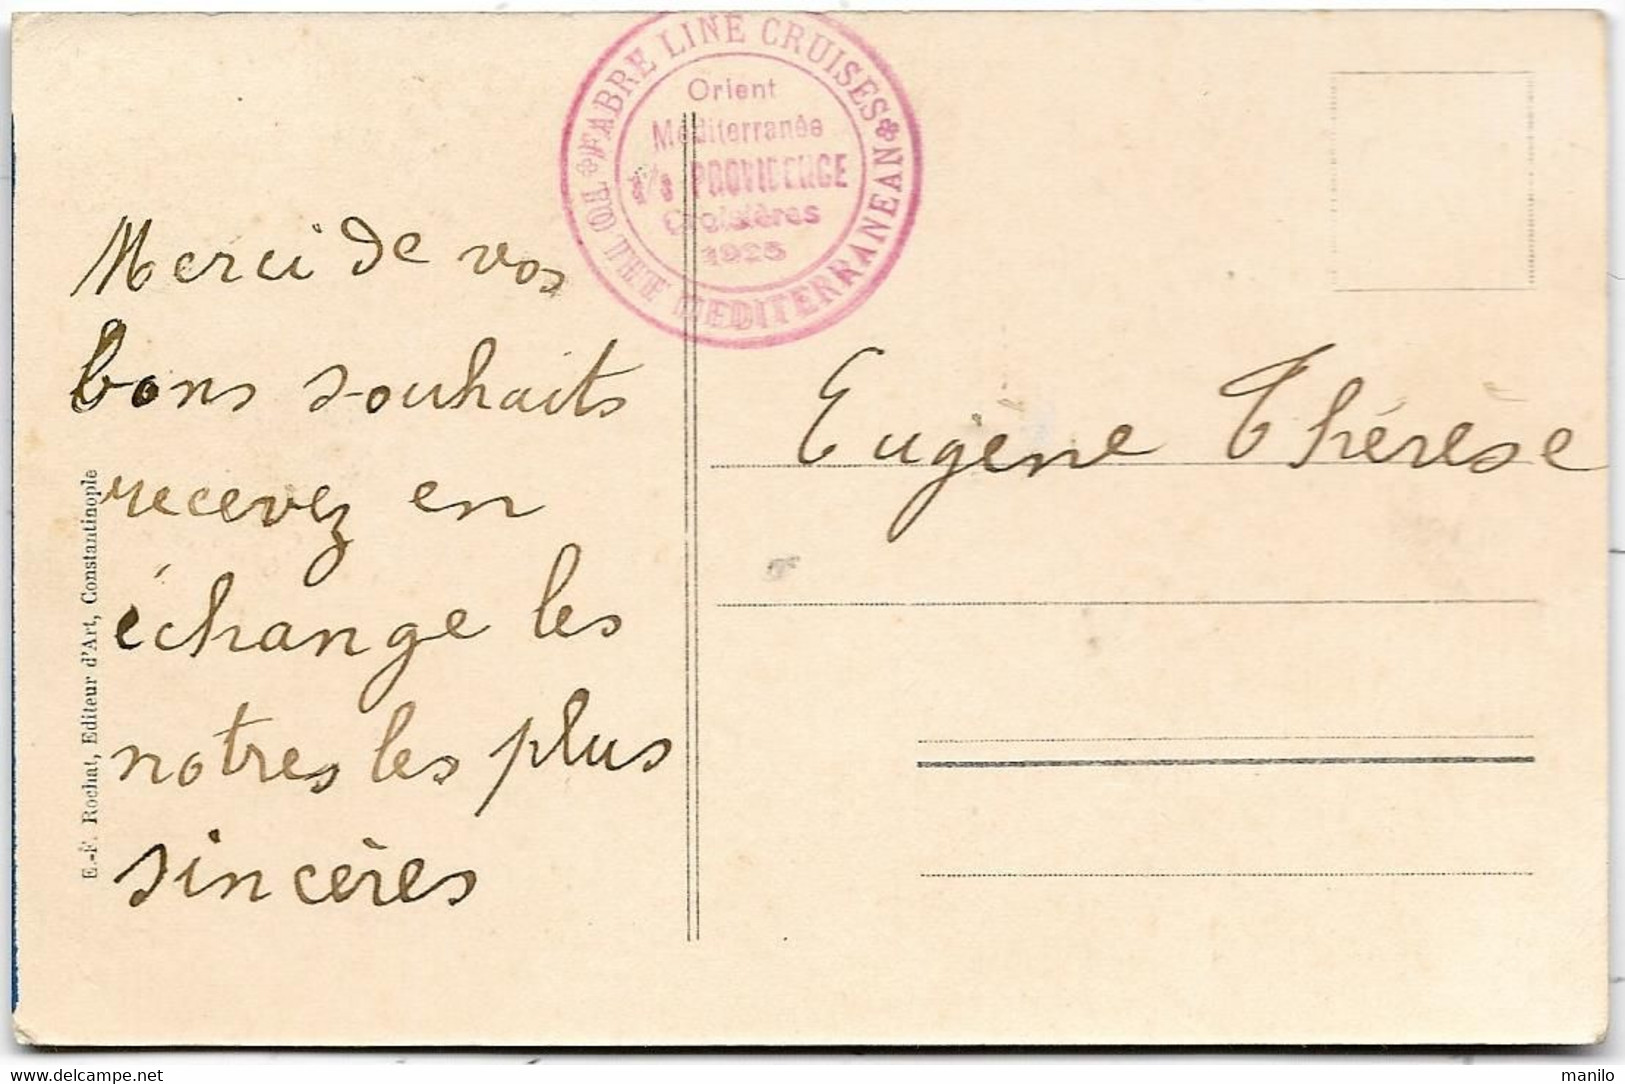 FABRE LINE CRUISES
TO THE MEDITERRANEAN
Orient
Méditerranée
s/s PROVIDENCE
Croisières
1925
Merci de vos
bons souhaits
recevez en
échange les
notres les plus
sincères
Eugène Thérèse
E.-F. Rochat, Editeur d'Art, Constantinople
delcampe.net
manilo